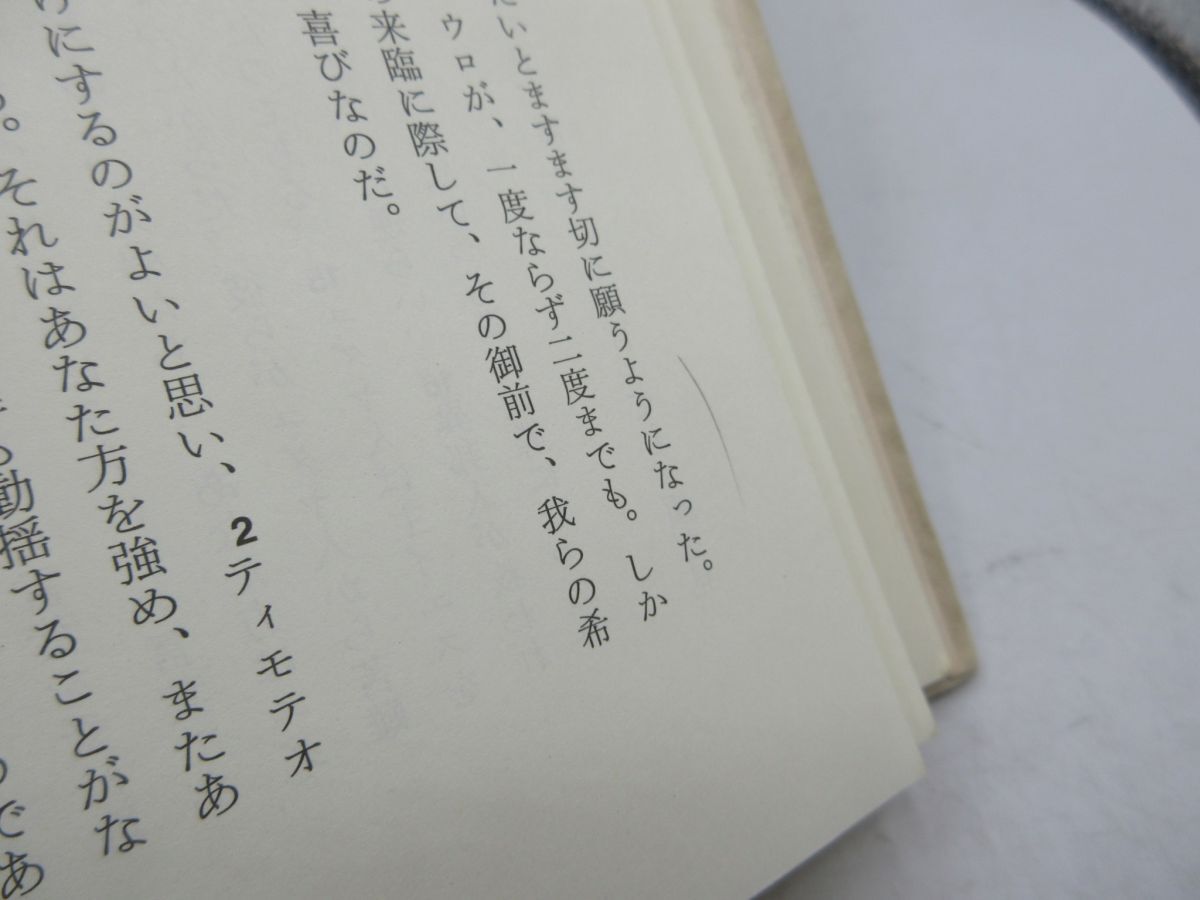 いとますます切に願うようになった。
ウロが、一度ならず二度までも。しか
来臨に際して、その御前で、我らの希
喜びなのだ。
にするのがよいと思い、2ティモテオ
。それはあなた方を強め、またあ
動揺することがな
であ